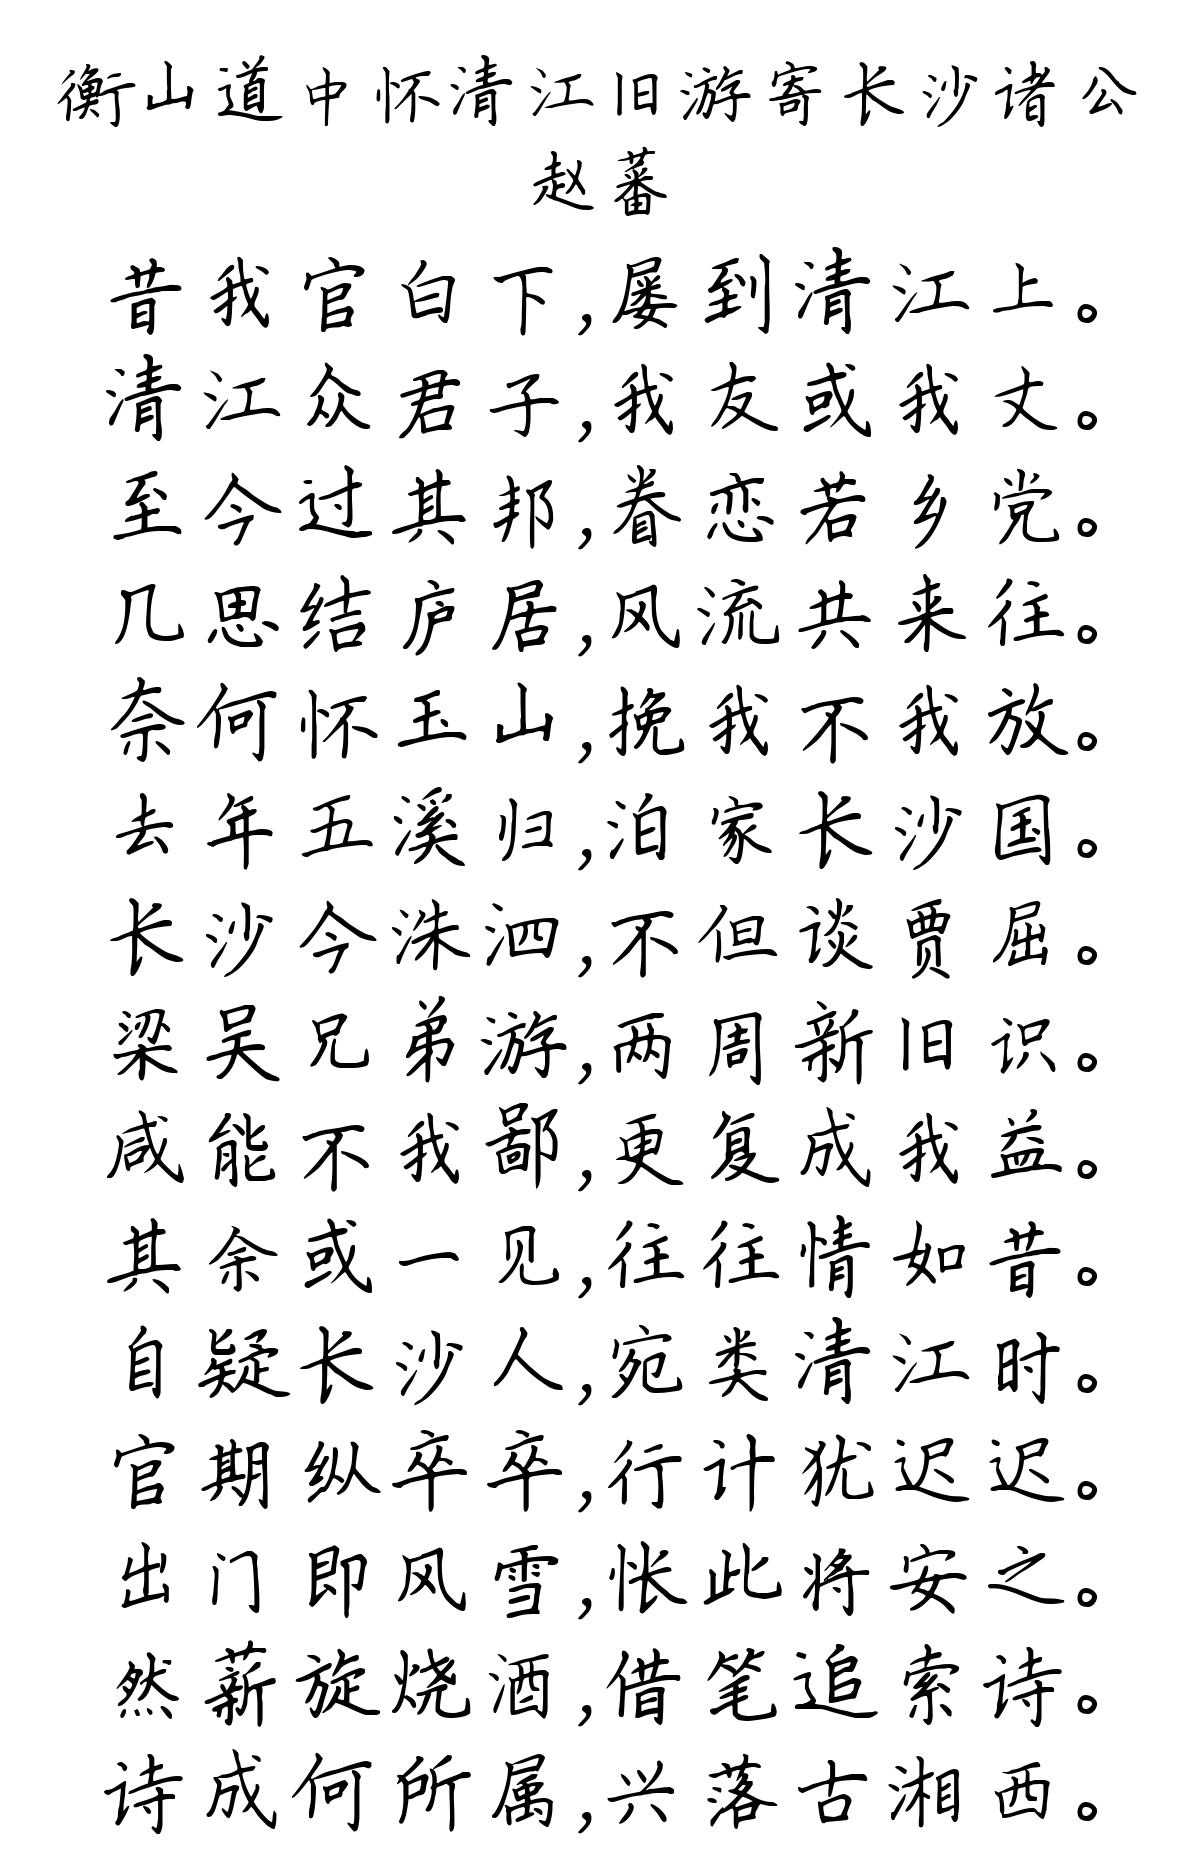 衡山道中怀清江旧游寄长沙诸公
赵蕃
昔我官白下,屡到清江上。
清江众君子,我友或我丈。
至今过其邦,眷恋若乡党。
几思结庐居,风流共来往。
奈何怀玉山,挽我不我放。
去年五溪归,泊家长沙国。
长沙今洙泗,不但谈贾屈。
梁吴兄弟游,两周新旧识。
咸能不我鄙,更复成我益。
其余或一见,往往情如昔。
自疑长沙人,宛类清江时。
官期纵卒卒,行计犹迟迟。
出门即风雪,怅此将安之。
然薪旋烧酒,借笔追索诗。
诗成何所属,兴落古湘西。